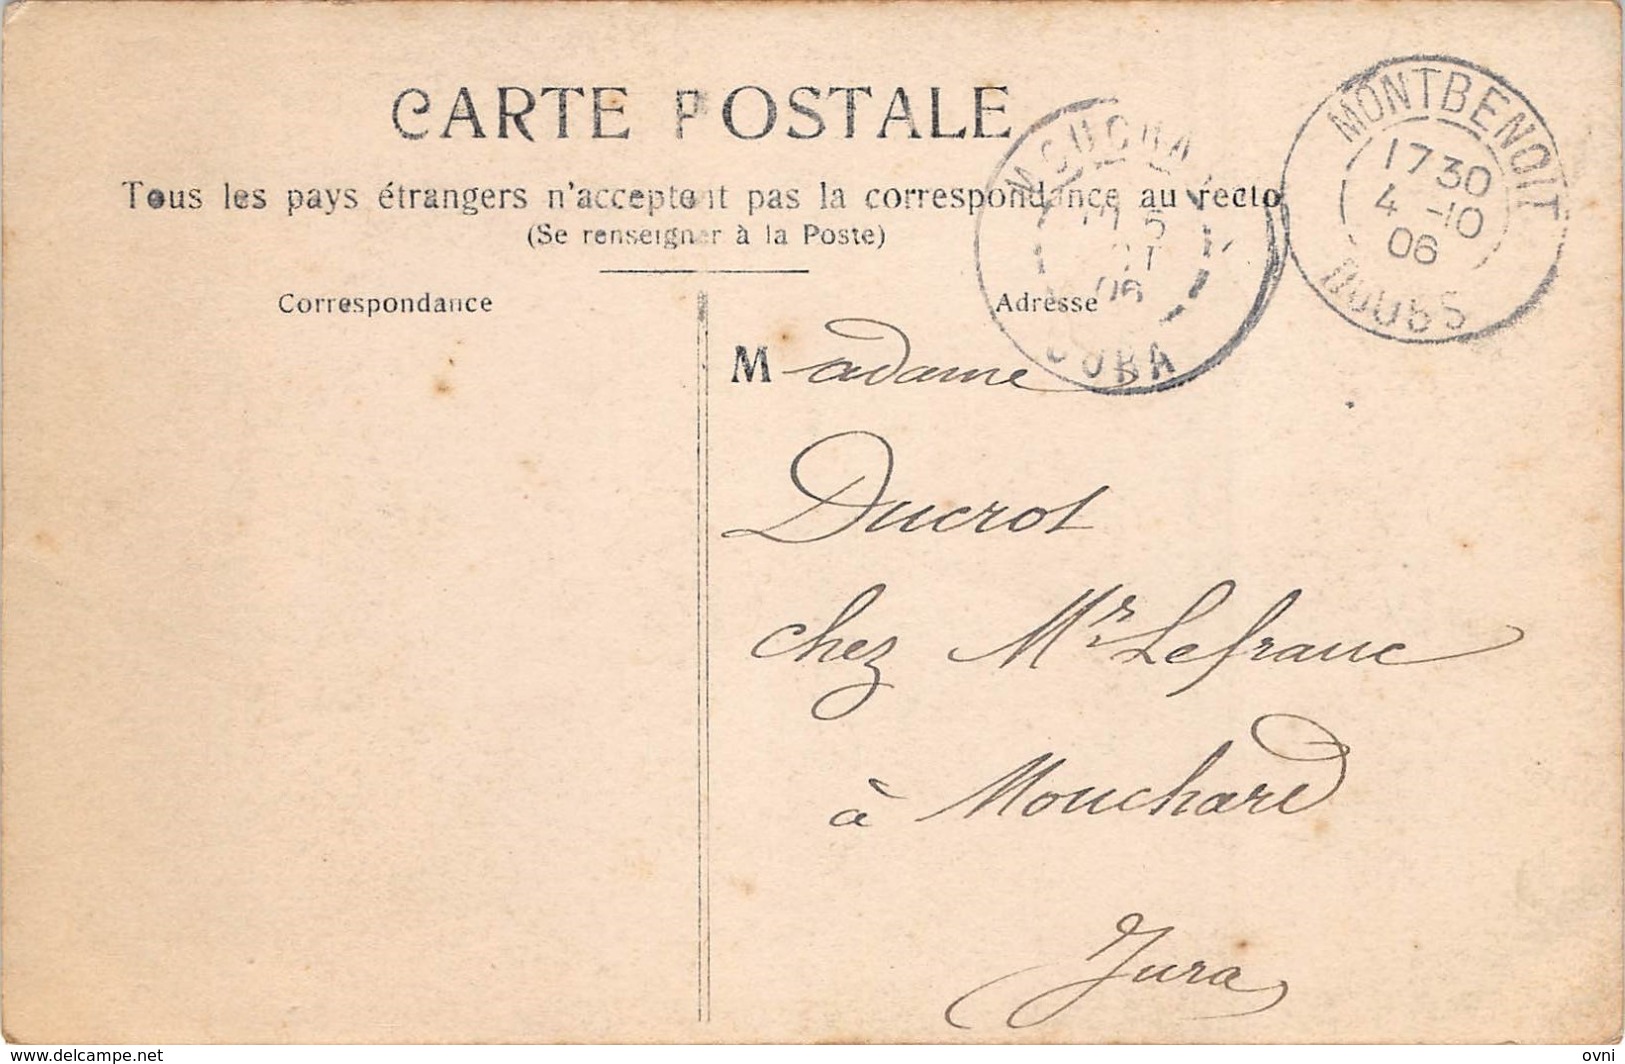 CARTE POSTALE
MONTBENOIT
17 30
4 -10
06
DOUBS
Tous les pays étrangers n'acceptent pas la correspondance au recto
(Se renseigner à la Poste)
5
06
JURA
Correspondance
Adresse
Madame
Ducrot
chez Mr Lefranc
à Mouchard
Jura
www.delcampe.net
ovni